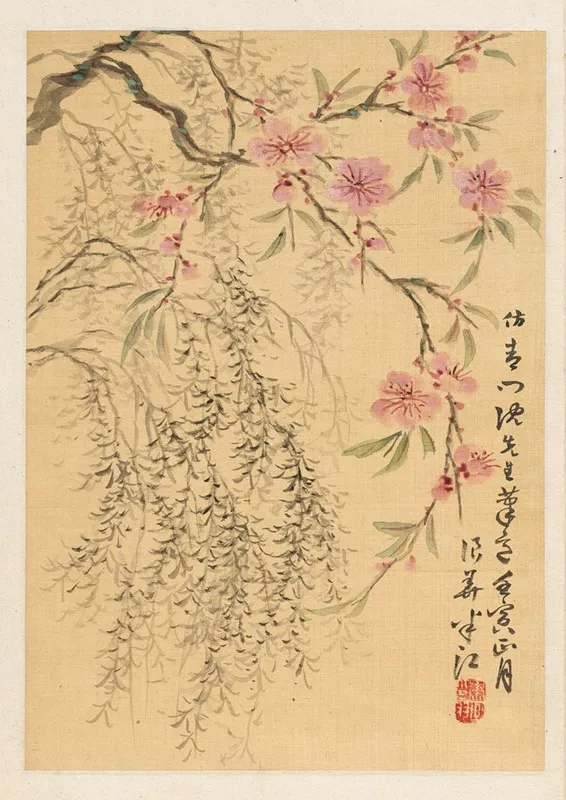 仿青門沈先生筆意壬寅正月
浪華半江